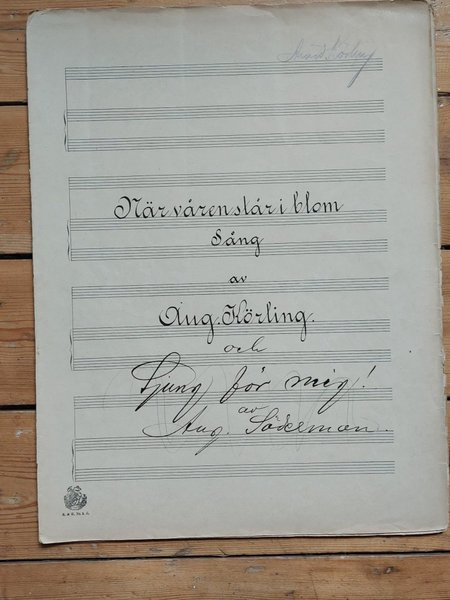 När våren slår i blom
Sång
av
Aug. Körling.
och
Sjung för mig!
av
Aug. Söderman.